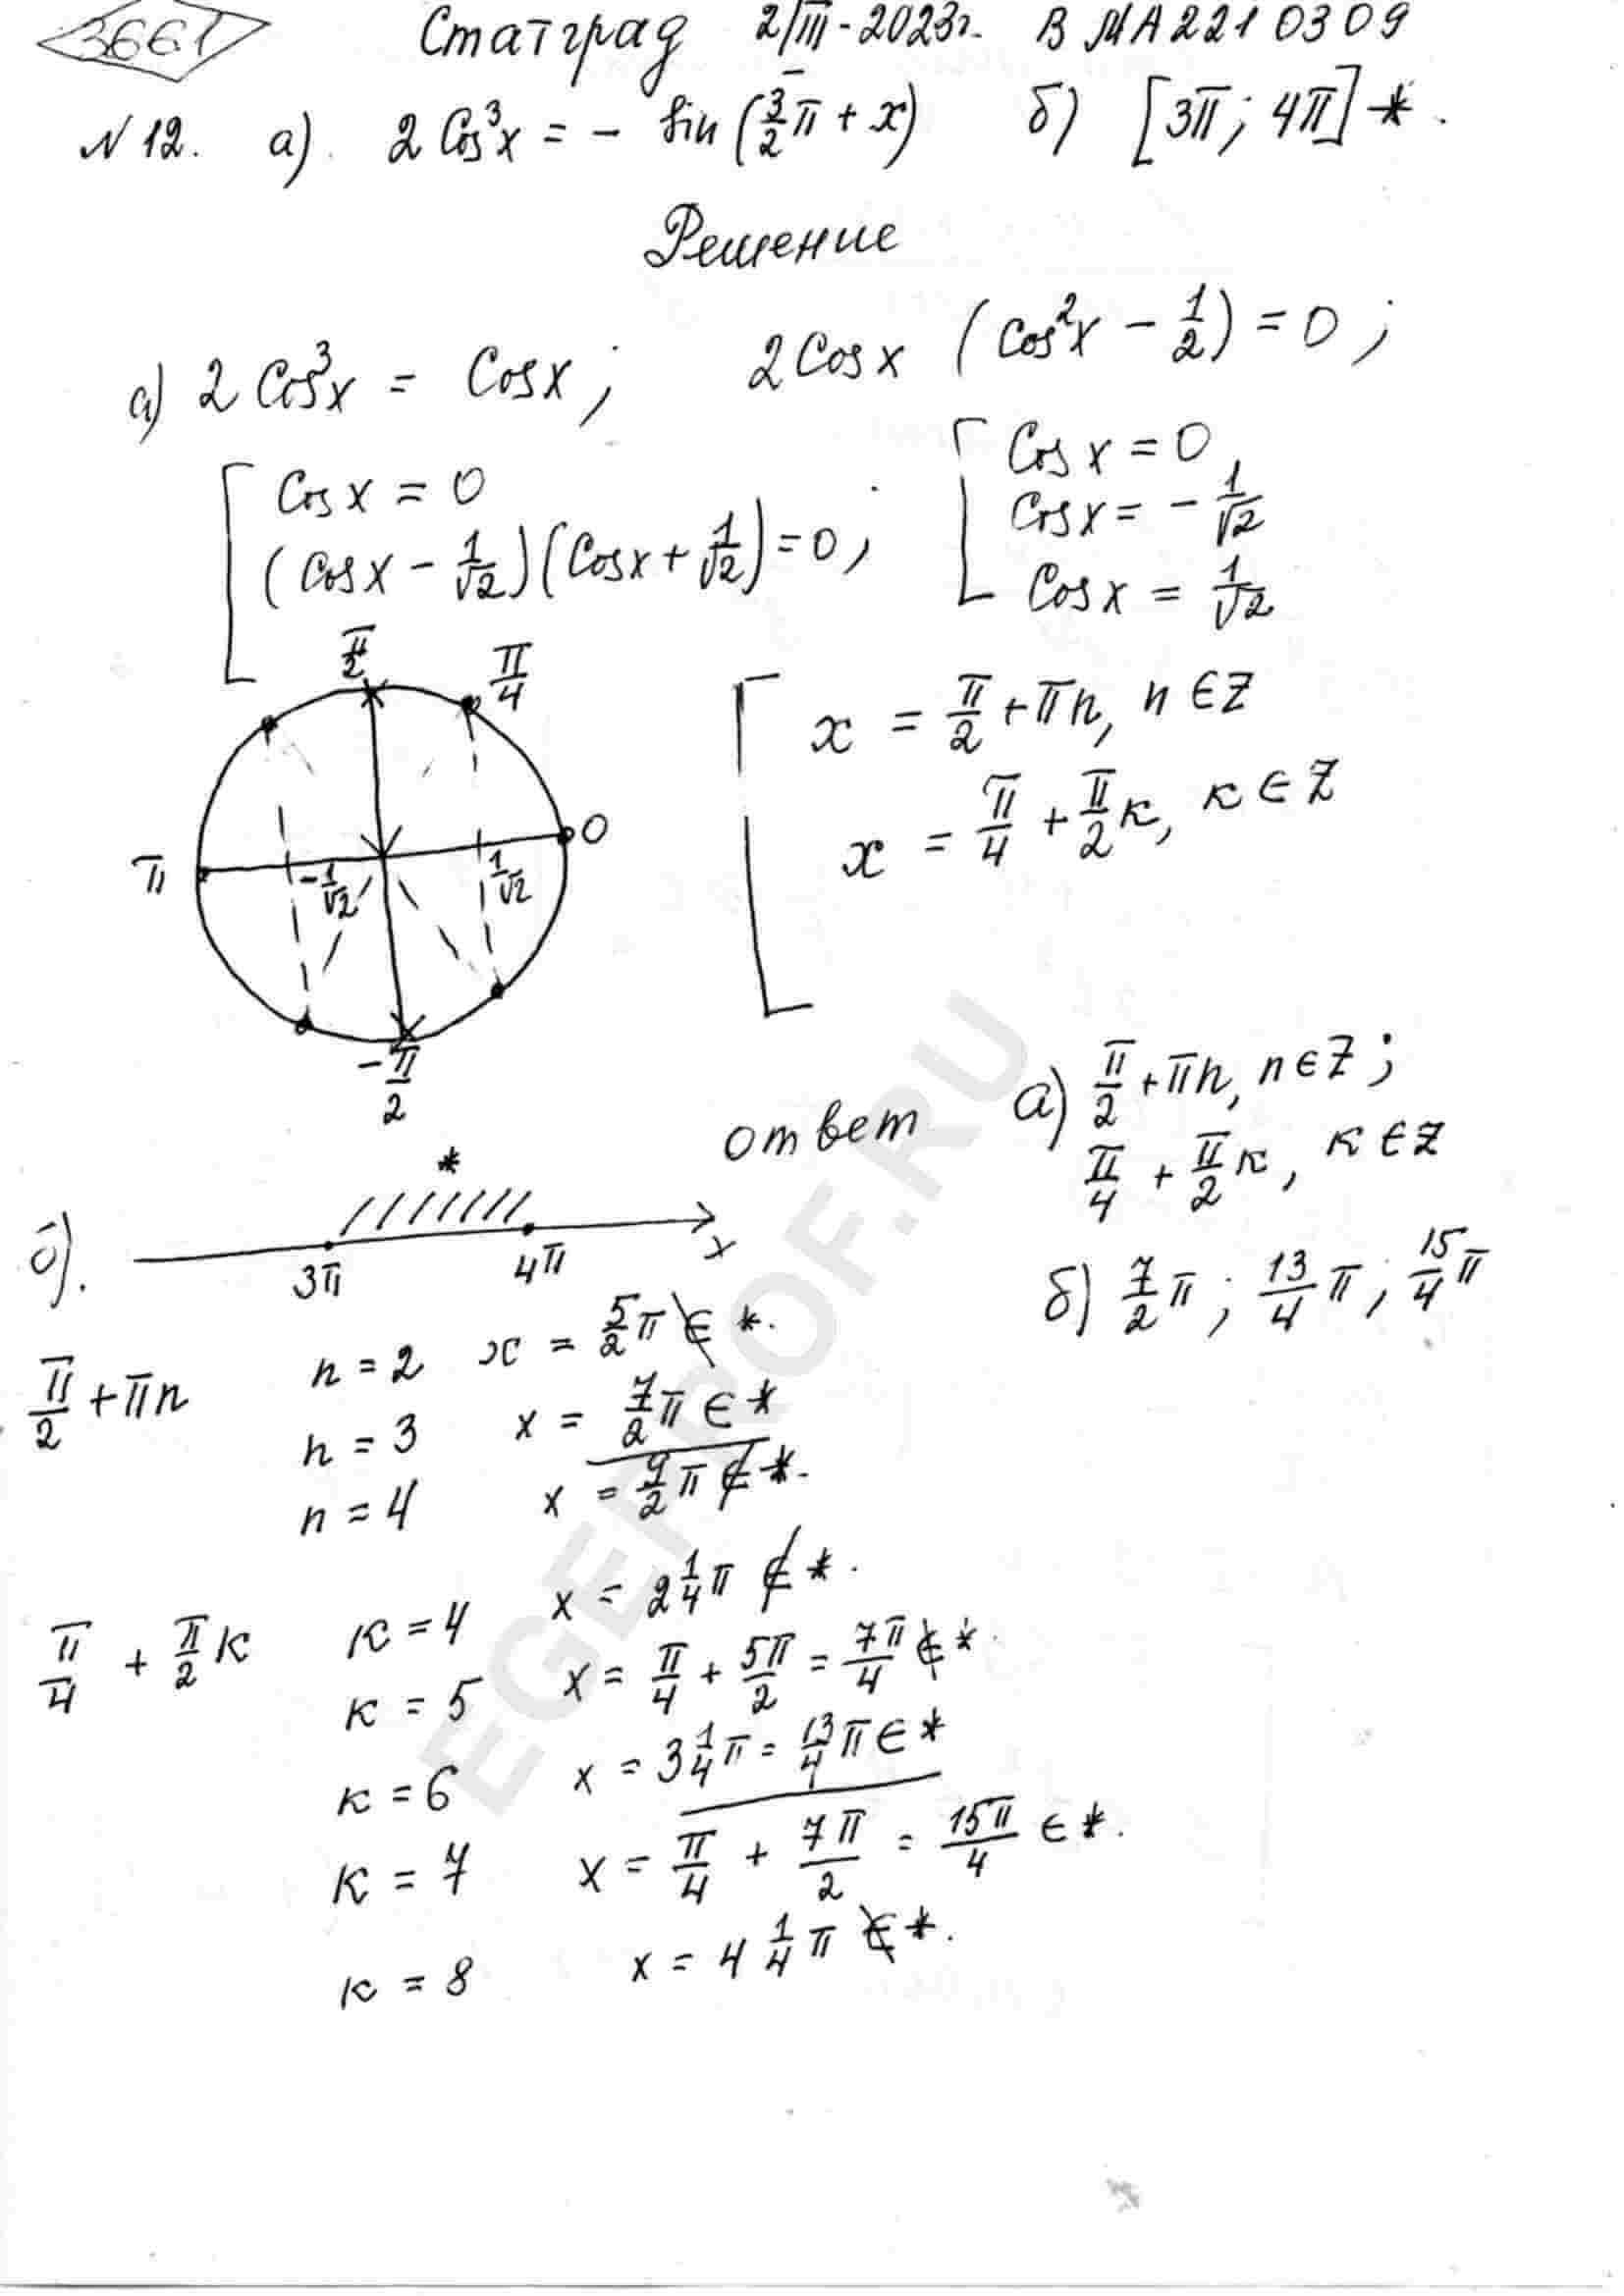 3661 Статград 2/III-2023г. В МА2210309
N 12. а) 2 Cos³x = - sin (3/2 π + x) б) [3π; 4π] *.
Решение
а) 2 Cos³x = Cosx; 2 Cosx (Cos²x - 1/2) = 0;
[ Cosx = 0
(Cosx - 1/√2)(Cosx + 1/√2) = 0;
[ Cosx = 0
Cosx = - 1/√2
Cosx = 1/√2
π/2
π/4
π
0
-1/√2
1/√2
-π/2
[ x = π/2 + πn, n ∈ Z
x = π/4 + π/2 к, к ∈ Z
ответ а) π/2 + πn, n ∈ Z;
π/4 + π/2 к, к ∈ Z
б) 7/2 π; 13/4 π; 15/4 π
б).
*
3π 4π x
π/2 + πn n = 2 x = 5/2 π ∉ *.
n = 3 x = 7/2 π ∈ *
n = 4 x = 9/2 π ∉ *.
π/4 + π/2 к к = 4 x = 2 1/4 π ∉ *.
к = 5 x = π/4 + 5π/2 = 7π/4 ∉ *.
к = 6 x = 3 1/4 π = 13/4 π ∈ *
к = 7 x = π/4 + 7π/2 = 15π/4 ∈ *.
к = 8 x = 4 1/4 π ∉ *.
EGEPROF.RU